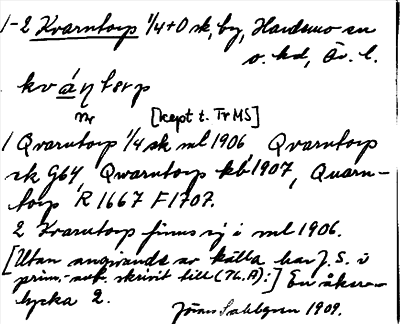 1-2 Kvarntorp 1/4+0 sk, by, Hardemo sn
o. hd, Ör. l.
kvá̱ɳtɛrp
Nr [kept t. Tr MS]
1 Qvarntorp 1/4 sk ml 1906 Qvarntorp
sk G64, Qwarntorp kb 1907, Quarn-
torp R 1667 F 1707.
2 Kvarntorp finns ej i ml 1906.
[Utan angivande av källa har J. S. i
prim.-avb. skrivit till (76.A):] En åkre-
lycka 2.
Jöran Sahlgren 1909.